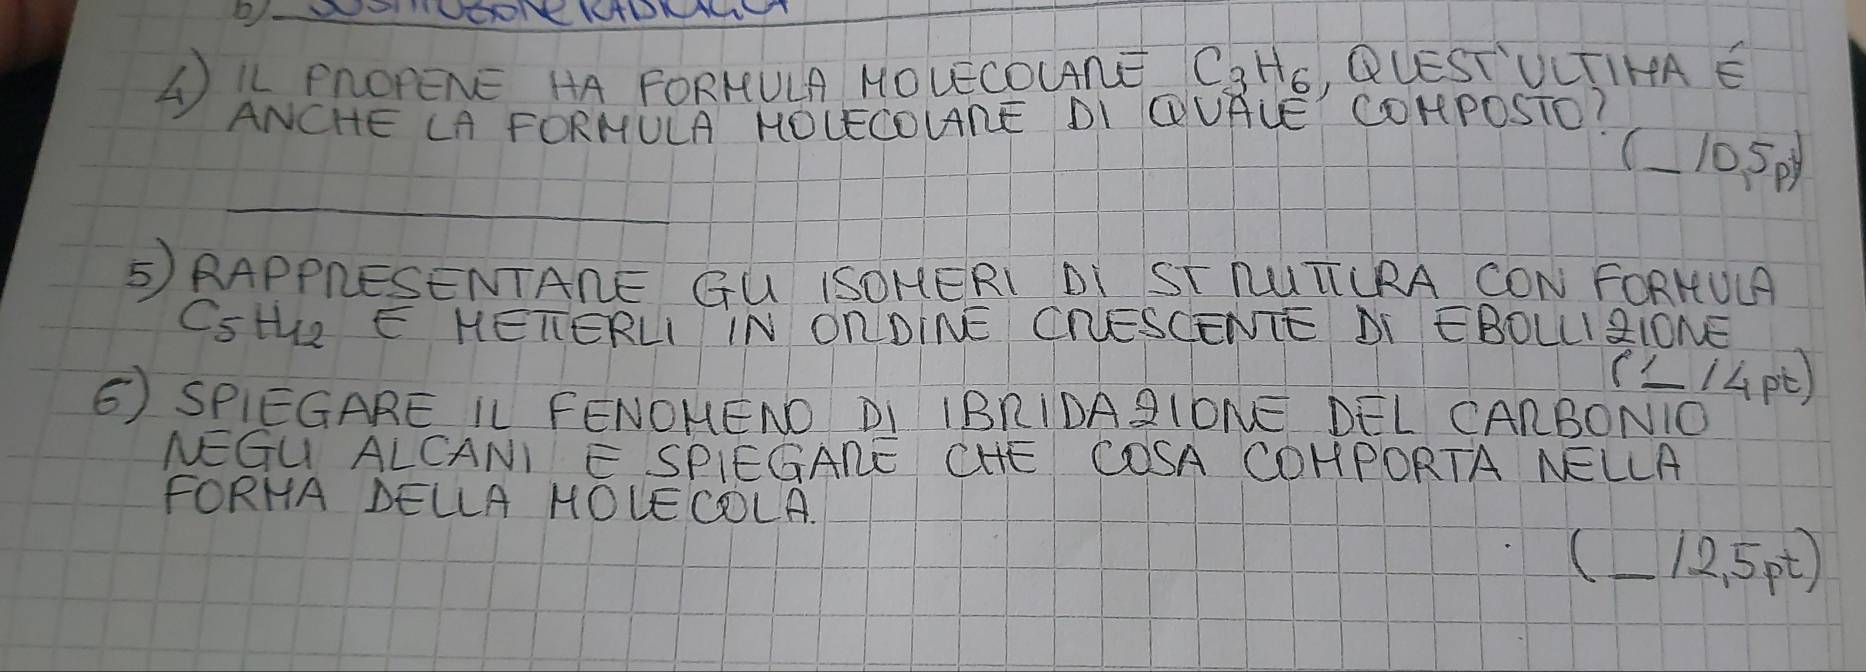 b) SOSTITUZIONE RADICALICA
4) IL PROPENE HA FORMULA MOLECOLARE C3H6, QUEST'ULTIMA É
ANCHE LA FORMULA MOLECOLARE DI QUALE COMPOSTO?
(_/0,5pt)
5) RAPPRESENTARE GLI ISOMERI DI STRUTTURA CON FORMULA
C5H12 E METTERLI IN ORDINE CRESCENTE DI EBOLLIZIONE
(_/4pt)
6) SPIEGARE IL FENOMENO DI IBRIDAZIONE DEL CARBONIO
NEGLI ALCANI E SPIEGARE CHE COSA COMPORTA NELLA
FORMA DELLA MOLECOLA.
(_/2,5pt)